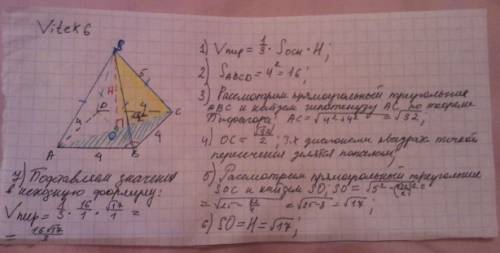 Vitek6
S
5
H
D
4
C
O
A
4
B
4
1) Vпир = 1/3 · Sосн · H;
2) SABCD = 4² = 16;
3) Рассмотрим прямоугольный треугольник
ABC и найдем гипотенузу AC по теореме
Пифагора: AC = √4²+4² = √32;
4) OC = √32/2, т.к диагонали квадрата точкой
пересечения делятся пополам;
5) Рассмотрим прямоугольный треугольник
SOC и найдем SO; SO = √5²-(√32/2)² =
= √25-32/4 = √25-8 = √17;
6) SO = H = √17;
7) Подставляем значения
в исходную формулу:
Vпир = 1/3 · 16/1 · √17/1 =
= 16√17/3